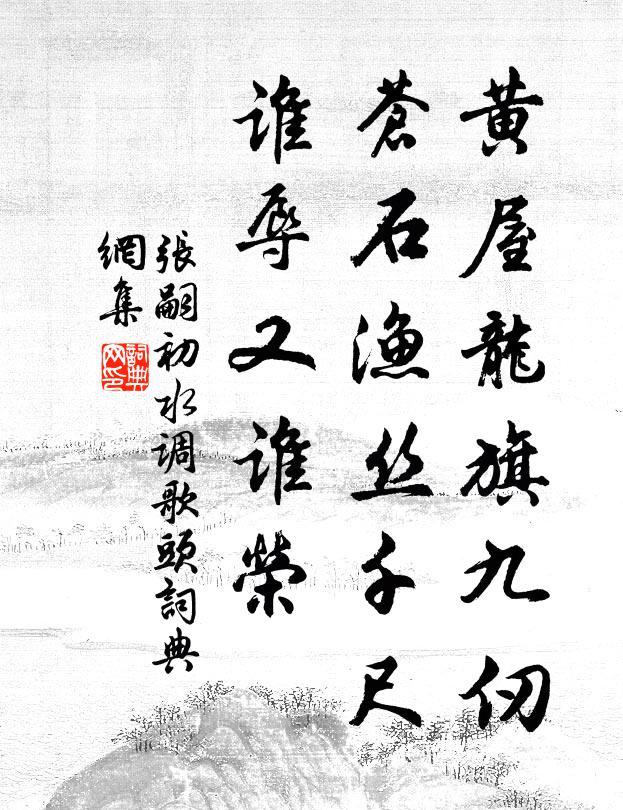 黄屋龍旗九仞
蒼石漁丝千尺
誰辱又誰榮
張嗣初水调歌頭詞典
網集
詞典
网印